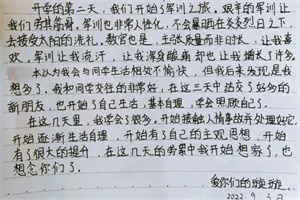 开学的第二天，我们开始了军训之旅。艰辛的军训让
我们劳其筋骨。军训也非常人性化，不会暴晒在炎炎烈日之下，
去接受太阳的洗礼。教官也是，主张质量而非时长，让我喜
欢。军训让我流汗，让我浑身酸痛却也让我增长了许多。
本以为我会和同学生活相处不愉快，但我后来发现是我
想多了，我和同学交往的非常好。在这三天中结交了好多的
新朋友，也开始了自己生活，基本自理，学会照顾自己。
在这几天里，我学会了很多，开始接触人情事故并处理好它，
开始逐渐生活自理，开始有了自己的主观思想，开始
有了很大的提升，在这几天的劳累中我开始想家了，也
想念你们了。
爱你们的
2022. 9. 3